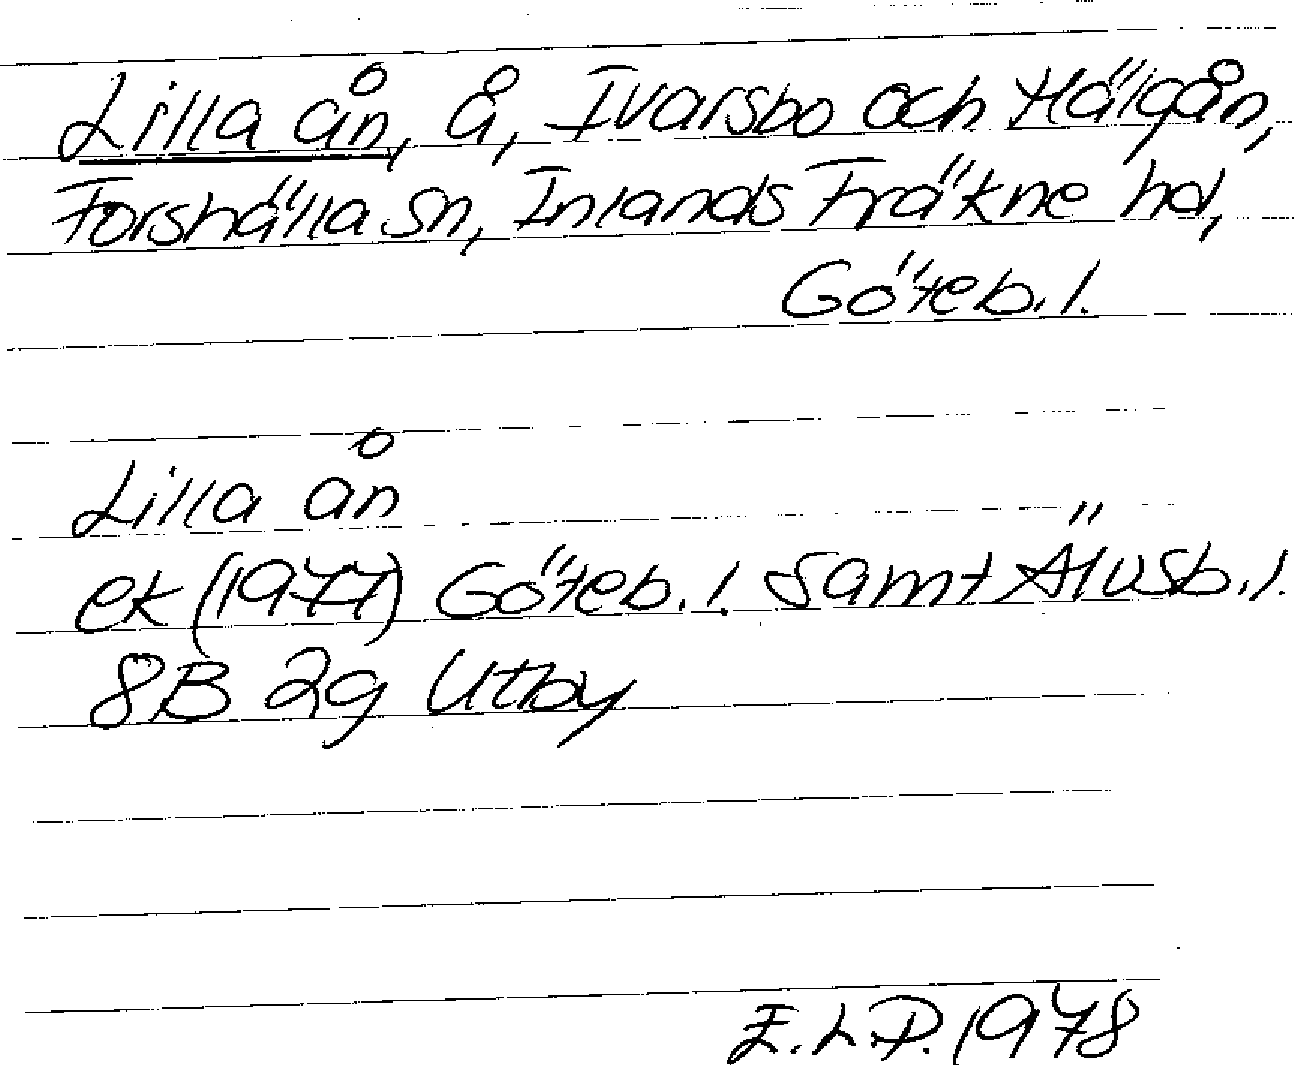 Lilla ån, å, Ivarsbo och Hälgån,
Forshälla sn, Inlands Fräkne hd,
Göteb. l.
Lilla ån
ek (1977) Göteb. l. samt Älvsb. l.
8B 2g Utby
E.L.P. 1978